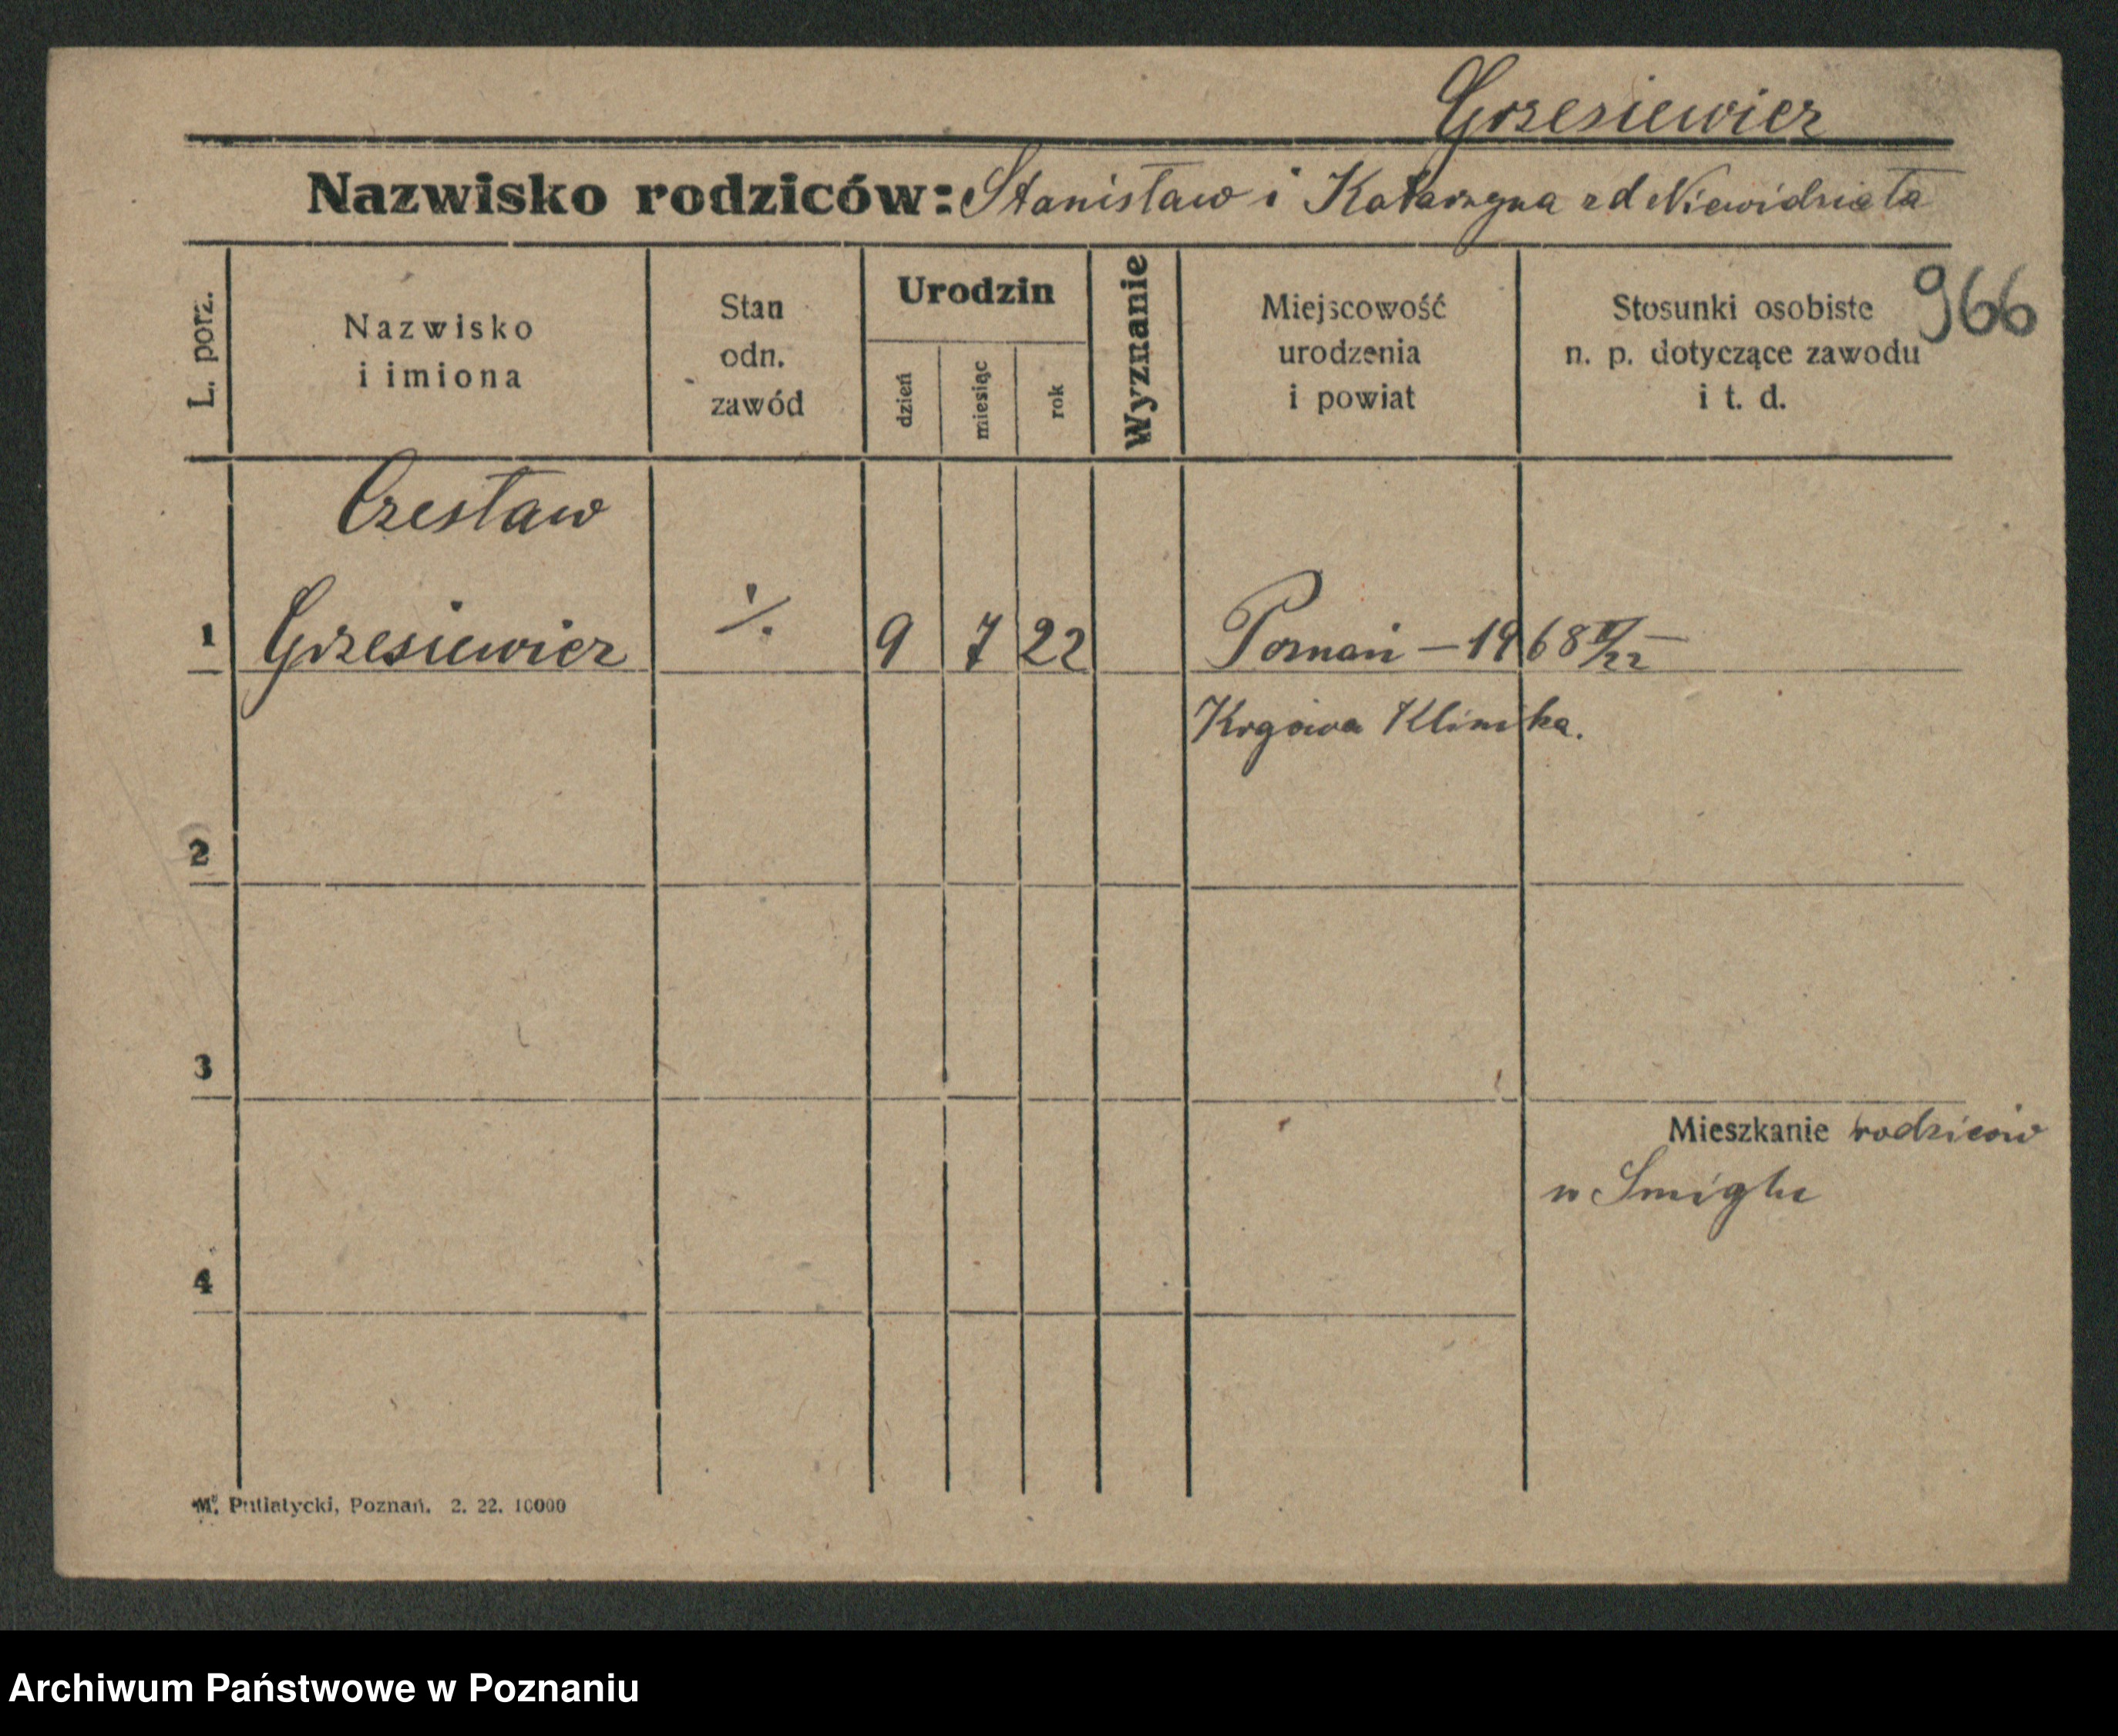 Grzesiewicz
Nazwisko rodziców: Stanisław i Katarzyna zd Niewidziała
966
L. porz.
Nazwisko
i imiona
Stan
odn.
zawód
Urodzin
dzień
miesiąc
rok
Wyznanie
Miejscowość
urodzenia
i powiat
Stosunki osobiste
n. p. dotyczące zawodu
i t. d.
Czesław
1 Grzesiewicz 9 7 22 Poznań – 1968 II/22 –
Krajowa Klinika.
2
3
Mieszkanie rodziców
w Śmiglu
4
M. Putiatycki, Poznań. 2. 22. 10000
Archiwum Państwowe w Poznaniu